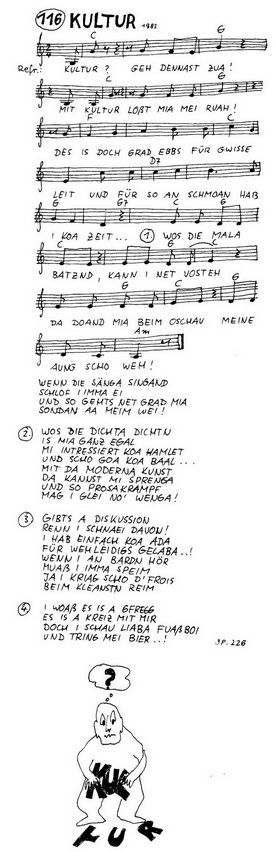 116 KULTUR 1982
C G
Refr.: KULTUR? GEH DENNAST ZUA!
C G
MIT KULTUR LOẞT MIA MEI RUAH!
F C
DES IS DOCH GRAD EBBS FÜR GWISSE
D7
LEIT UND FÜR SO AN SCHMOAN HAB
G G7 C
I KOA ZEIT... 1. WOS DIE MALA
C G C
BATZND, KANN I NET VOSTEH
G C G
DA DOAND MIA BEIM OSCHAU MEINE
C Am
AUNG SCHO WEH!
WENN DIE SÄNGA SINGAND
SCHLOF I IMMA EI
UND SO GEHTS NET GRAD MIA
SONDAN AA MEIM WEI!
2. WOS DIE DICHTA DICHTN
IS MIA GANZ EGAL
MI INTRESSIERT KOA HAMLET
UND SCHO GOA KOA BAAL...
MIT DA MODERNA KUNST
DA KANNST MI SPRENGA
UND SO PROSAKRAMPF
MAG I GLEI NO' WENGA!
3. GIBTS A DISKUSSION
RENN I SCHNAEI DAVON!
I HAB EINFACH KOA ADA
FÜR WEHLEIDIGS GELABA..!
WENN I AN BARDN HÖR
MUAẞ I IMMA SPEIM
JA I KRIAG SCHO D'FROIS
BEIM KLEANSTN REIM
4. I WOAẞ ES IS A GFREGG
ES IS A KREIZ MIT MIR
DOCH I SCHAU LIABA FUAẞBOI
UND TRING MEI BIER..!
SP. 226
?
KUL
TUR